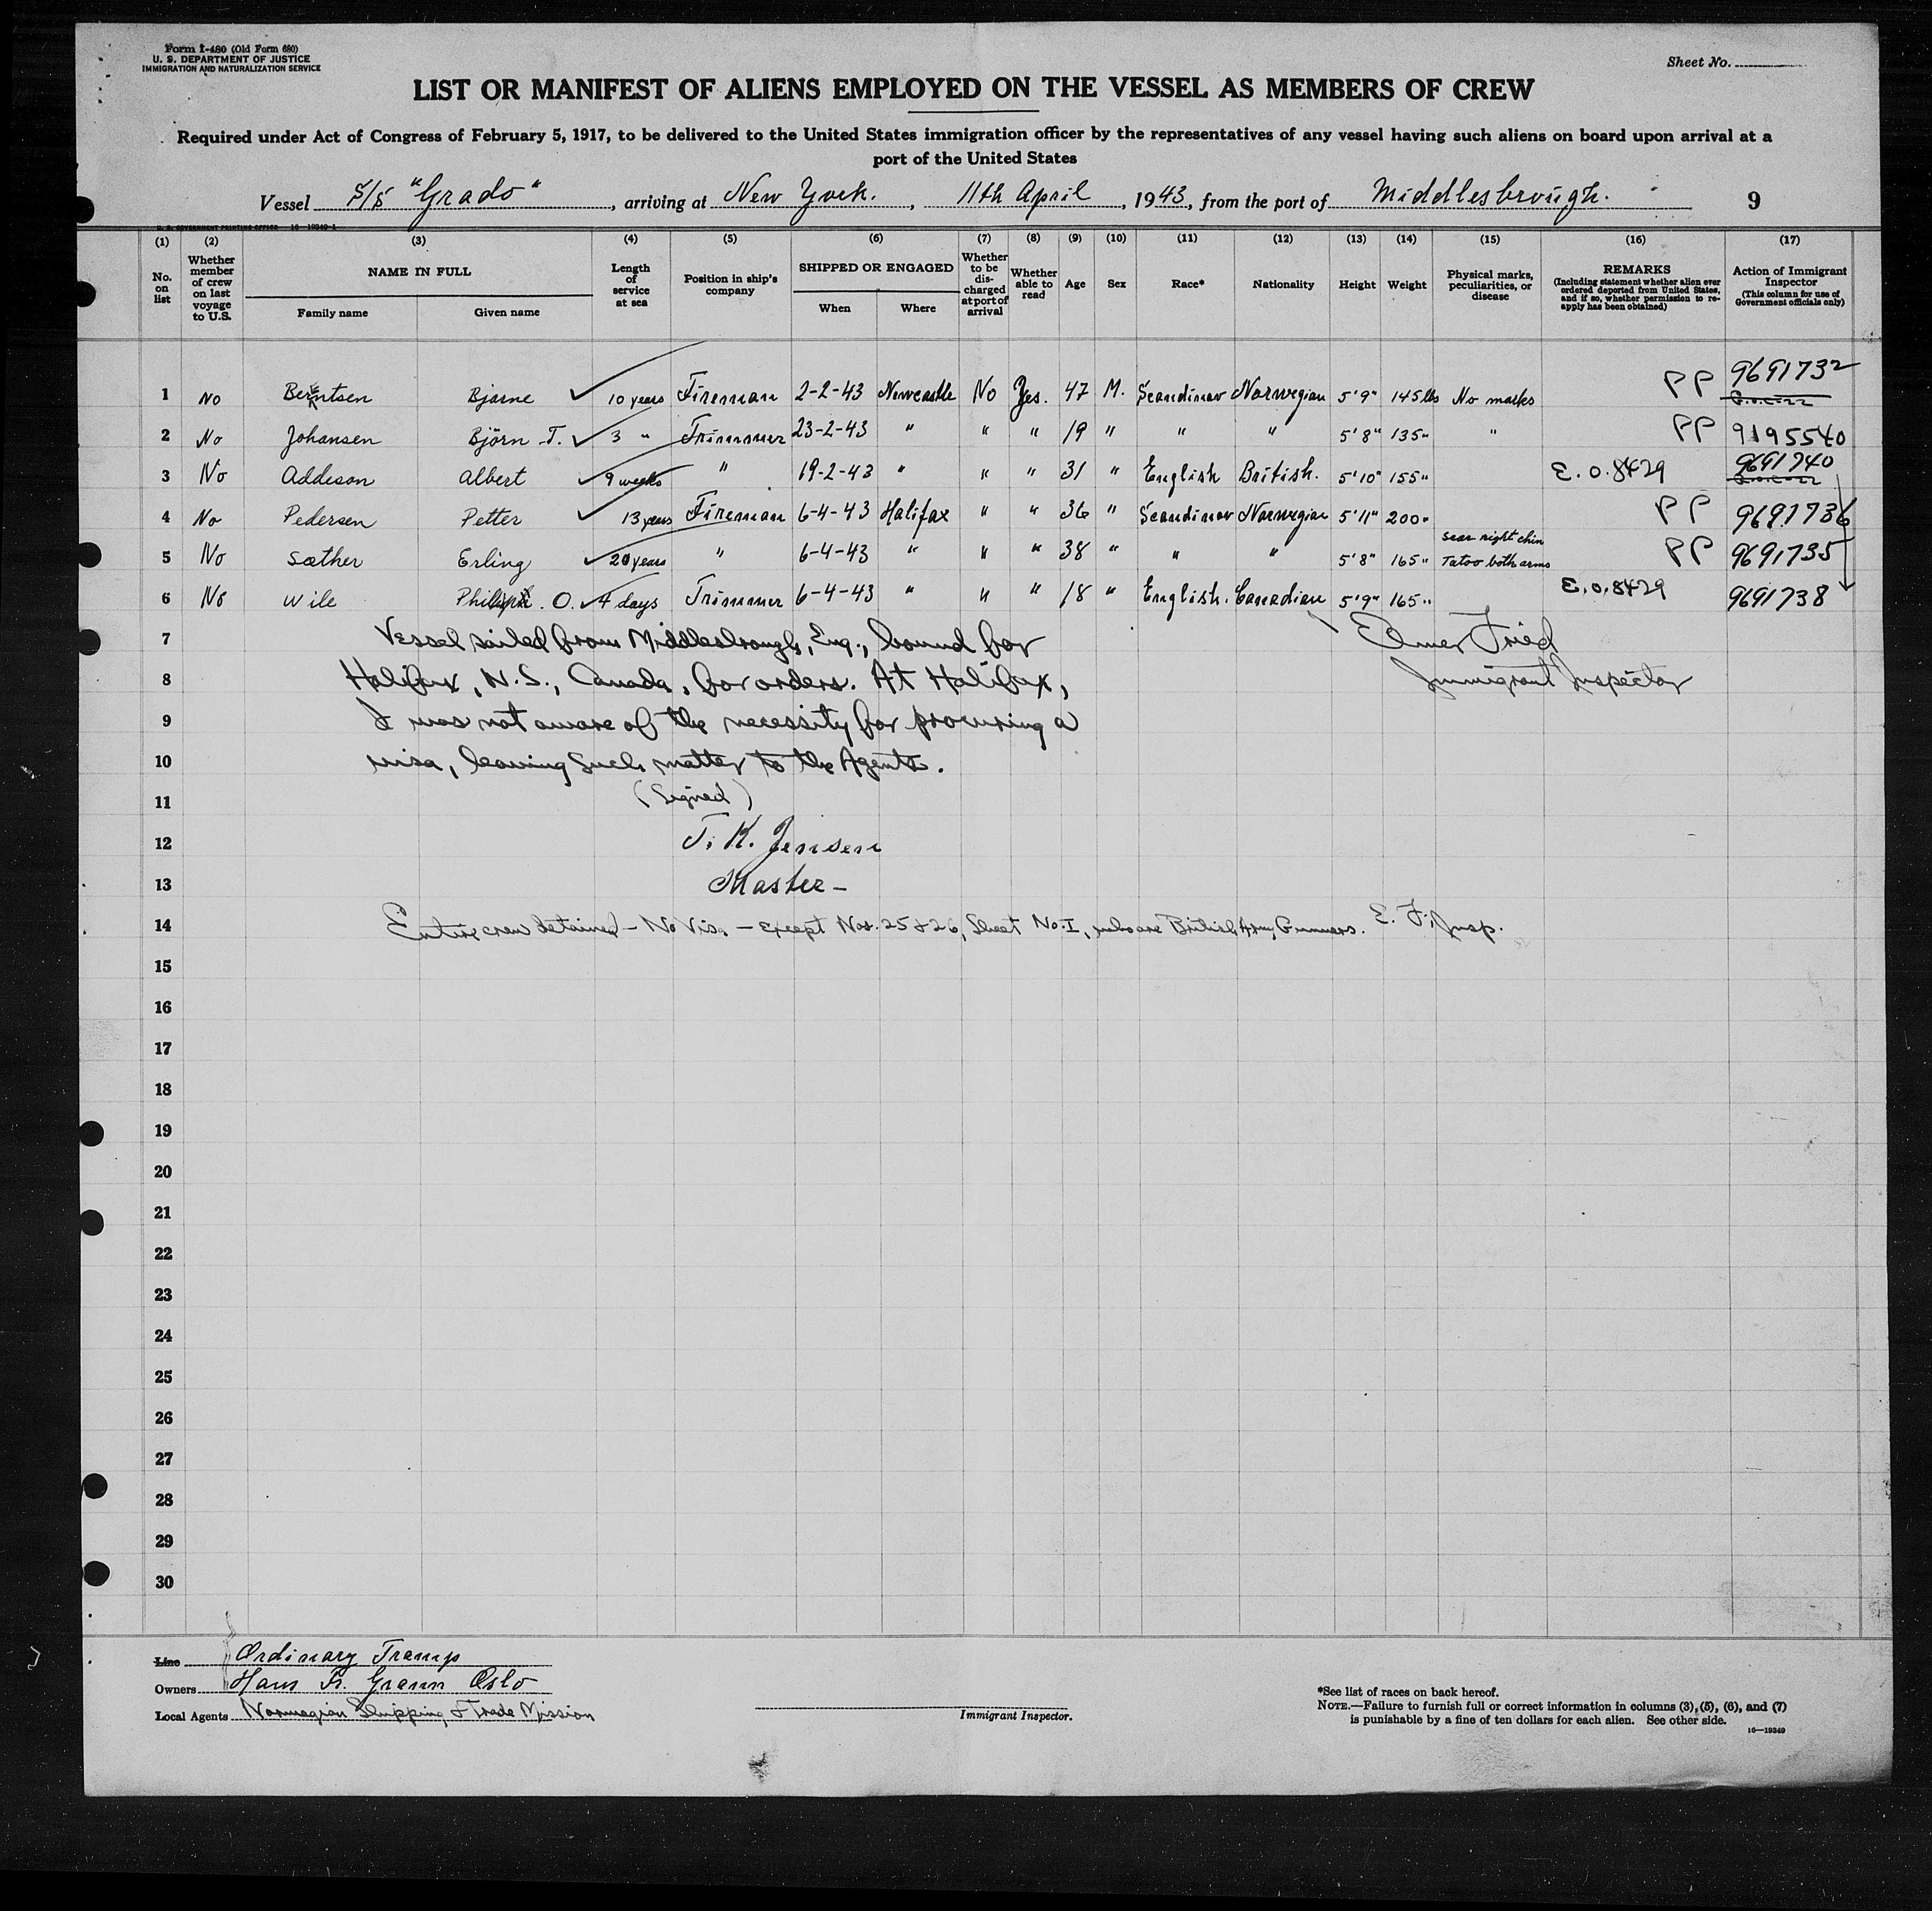 Form I-480 (Old Form 680)
U. S. DEPARTMENT OF JUSTICE
IMMIGRATION AND NATURALIZATION SERVICE
Sheet No.
LIST OR MANIFEST OF ALIENS EMPLOYED ON THE VESSEL AS MEMBERS OF CREW
Required under Act of Congress of February 5, 1917, to be delivered to the United States immigration officer by the representatives of any vessel having such aliens on board upon arrival at a
port of the United States
Vessel S/S "Grado", arriving at New York., 11th April, 1943, from the port of Middlesbrough. 9
U. S. GOVERNMENT PRINTING OFFICE 16-19349-1
(1) (2) (3) (4) (5) (6) (7) (8) (9) (10) (11) (12) (13) (14) (15) (16) (17)
No. on list
Whether member of crew on last voyage to U.S.
NAME IN FULL
Family name
Given name
Length of service at sea
Position in ship's company
SHIPPED OR ENGAGED
When
Where
Whether to be discharged at port of arrival
Whether able to read
Age
Sex
Race*
Nationality
Height
Weight
Physical marks, peculiarities, or disease
REMARKS
(Including statement whether alien ever ordered deported from United States, and if so, whether permission to reapply has been obtained)
Action of Immigrant Inspector
(This column for use of Government officials only)
1 No Berntsen Bjarne 10 years Fireman 2-2-43 Newcastle No Yes. 47 M. Scandinav Norwegian 5'9" 145 lbs No marks PP 9691732
2 No Johansen Björn T. 3 " Trimmer 23-2-43 " " " 19 " " " 5'8" 135 " " PP 9195540
3 No Addeson Albert 9 weeks " 19-2-43 " " " 31 " English British. 5'10" 155 " E.O. 8429 9691740
4 No Pedersen Petter 13 years Fireman 6-4-43 Halifax " " 36 " Scandinav Norwegian 5'11" 200 " PP 9691736
5 No Sæther Erling 20 years " 6-4-43 " " " 38 " " " 5'8" 165 " scar right chin Tatoo both arms PP 9691735
6 No Wile Philip O. 4 days Trimmer 6-4-43 " " " 18 " English. Canadian 5'9" 165 " E.O. 8429 9691738
7 Vessel sailed from Middlesbrough, Eng., bound for Elmer Fried
8 Halifax, N.S., Canada, for orders. At Halifax, Immigrant Inspector
9 I was not aware of the necessity for procuring a
10 visa, leaving such matter to the Agents.
11 (Signed)
12 T. K. Jensen
13 Master -
14 Entire crew detained - No Visa - except Nos. 25 & 26, Sheet No. I, who are British Army Gunners. E. F., Insp.
15
16
17
18
19
20
21
22
23
24
25
26
27
28
29
30
Line Ordinary Tramp
Owners Hans Fr. Grann Oslo
Local Agents Norwegian Shipping & Trade Mission
Immigrant Inspector.
*See list of races on back hereof.
NOTE.—Failure to furnish full or correct information in columns (3), (5), (6), and (7)
is punishable by a fine of ten dollars for each alien. See other side.
16—19349